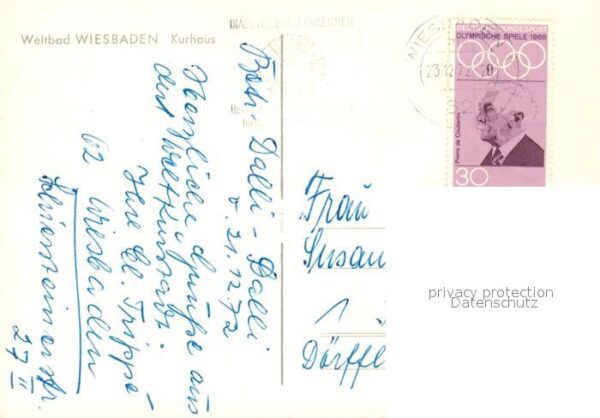 Weltbad WIESBADEN Kurhaus
Betr. Dalli-Dalli
v. 21.12.72
Herzliche Grüße aus
der Weltkurstadt
Ihre Cl. Trippé
62 Wiesbaden
27 II
WIESBADEN
23.12.72
DEUTSCHE BUNDESPOST
OLYMPISCHE SPIELE 1968
Pierre de Coubertin
30
Frau
Susan
Dörffl
privacy protection
Datenschutz